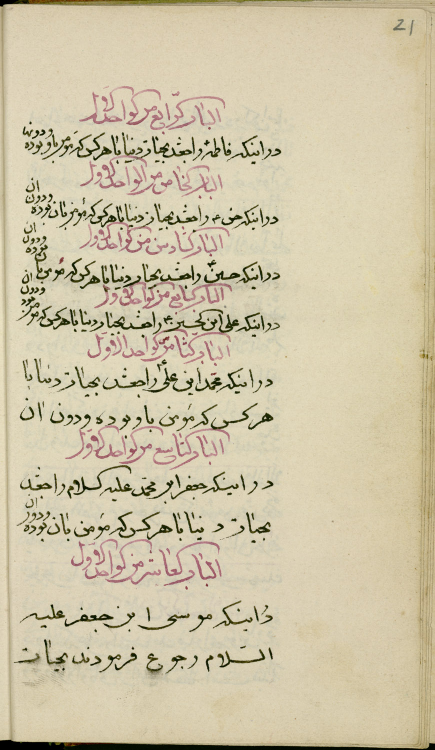 21
الباب الرابع من الواحد الاول
در اینکه فاطمه راجع شد بحیاة دنیا با هر کس که مؤمن باو بوده و دون آن
الباب الخامس من الواحد الاول
در اینکه حسن ع راجع شد بحیاة دنیا با هر کس که مؤمن بآن بوده و دون آن
الباب السادس من الواحد الاول
در اینکه حسین ع راجع شد بحیاة دنیا با هر کس که مؤمن بآن بوده و دون آن
الباب السابع من الواحد الاول
در اینکه علی ابن الحسین ع راجع شد بحیاة دنیا با هر کس که مؤمن بود و دون آن
الباب الثامن من الواحد الاول
در اینکه محمد ابن علی ع راجع شد بحیاة دنیا با
هر کس که مؤمن باو بوده و دون ان
الباب التاسع من الواحد الاول
در اینکه جعفر ابن محمد علیه السلام راجع شد
بحیاة دنیا با هر کس که مؤمن بآن بوده و دون آن
الباب العاشر من الواحد الاول
در اینکه موسی ابن جعفر علیه
السلام رجوع فرمودند بحیات